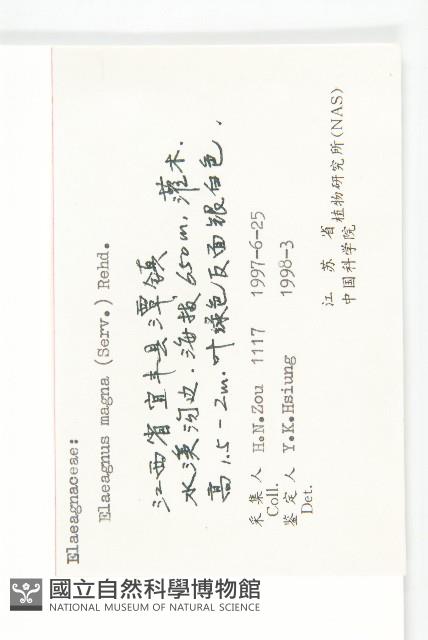 Elaeagnaceae:
Elaeagnus magna (Serv.) Rehd.
江西省宜丰县潭镇
水溪沟边.海拔650m,灌木.
高1.5-2m.叶绿色反面银白色.
采集人 H.N.Zou 1117 1997-6-25
Coll.
鉴定人 Y.K.Hsiung 1998-3
Det.
江苏省植物研究所(NAS)
中国科学院
國立自然科學博物館
NATIONAL MUSEUM OF NATURAL SCIENCE